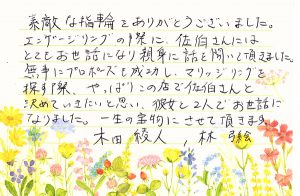 素敵な指輪をありがとうございました。
エンゲージリングの際に、佐伯さんには
とてもお世話になり親身に話を聞いて頂きました。
無事にプロポーズも成功し、マリッジリングを
探す際、やっぱりこの店で佐伯さんと
決めていきたいと思い、彼女と2人でお世話に
なりました。一生の宝物にさせて頂きます。
木田 絞人 , 林 弥絵